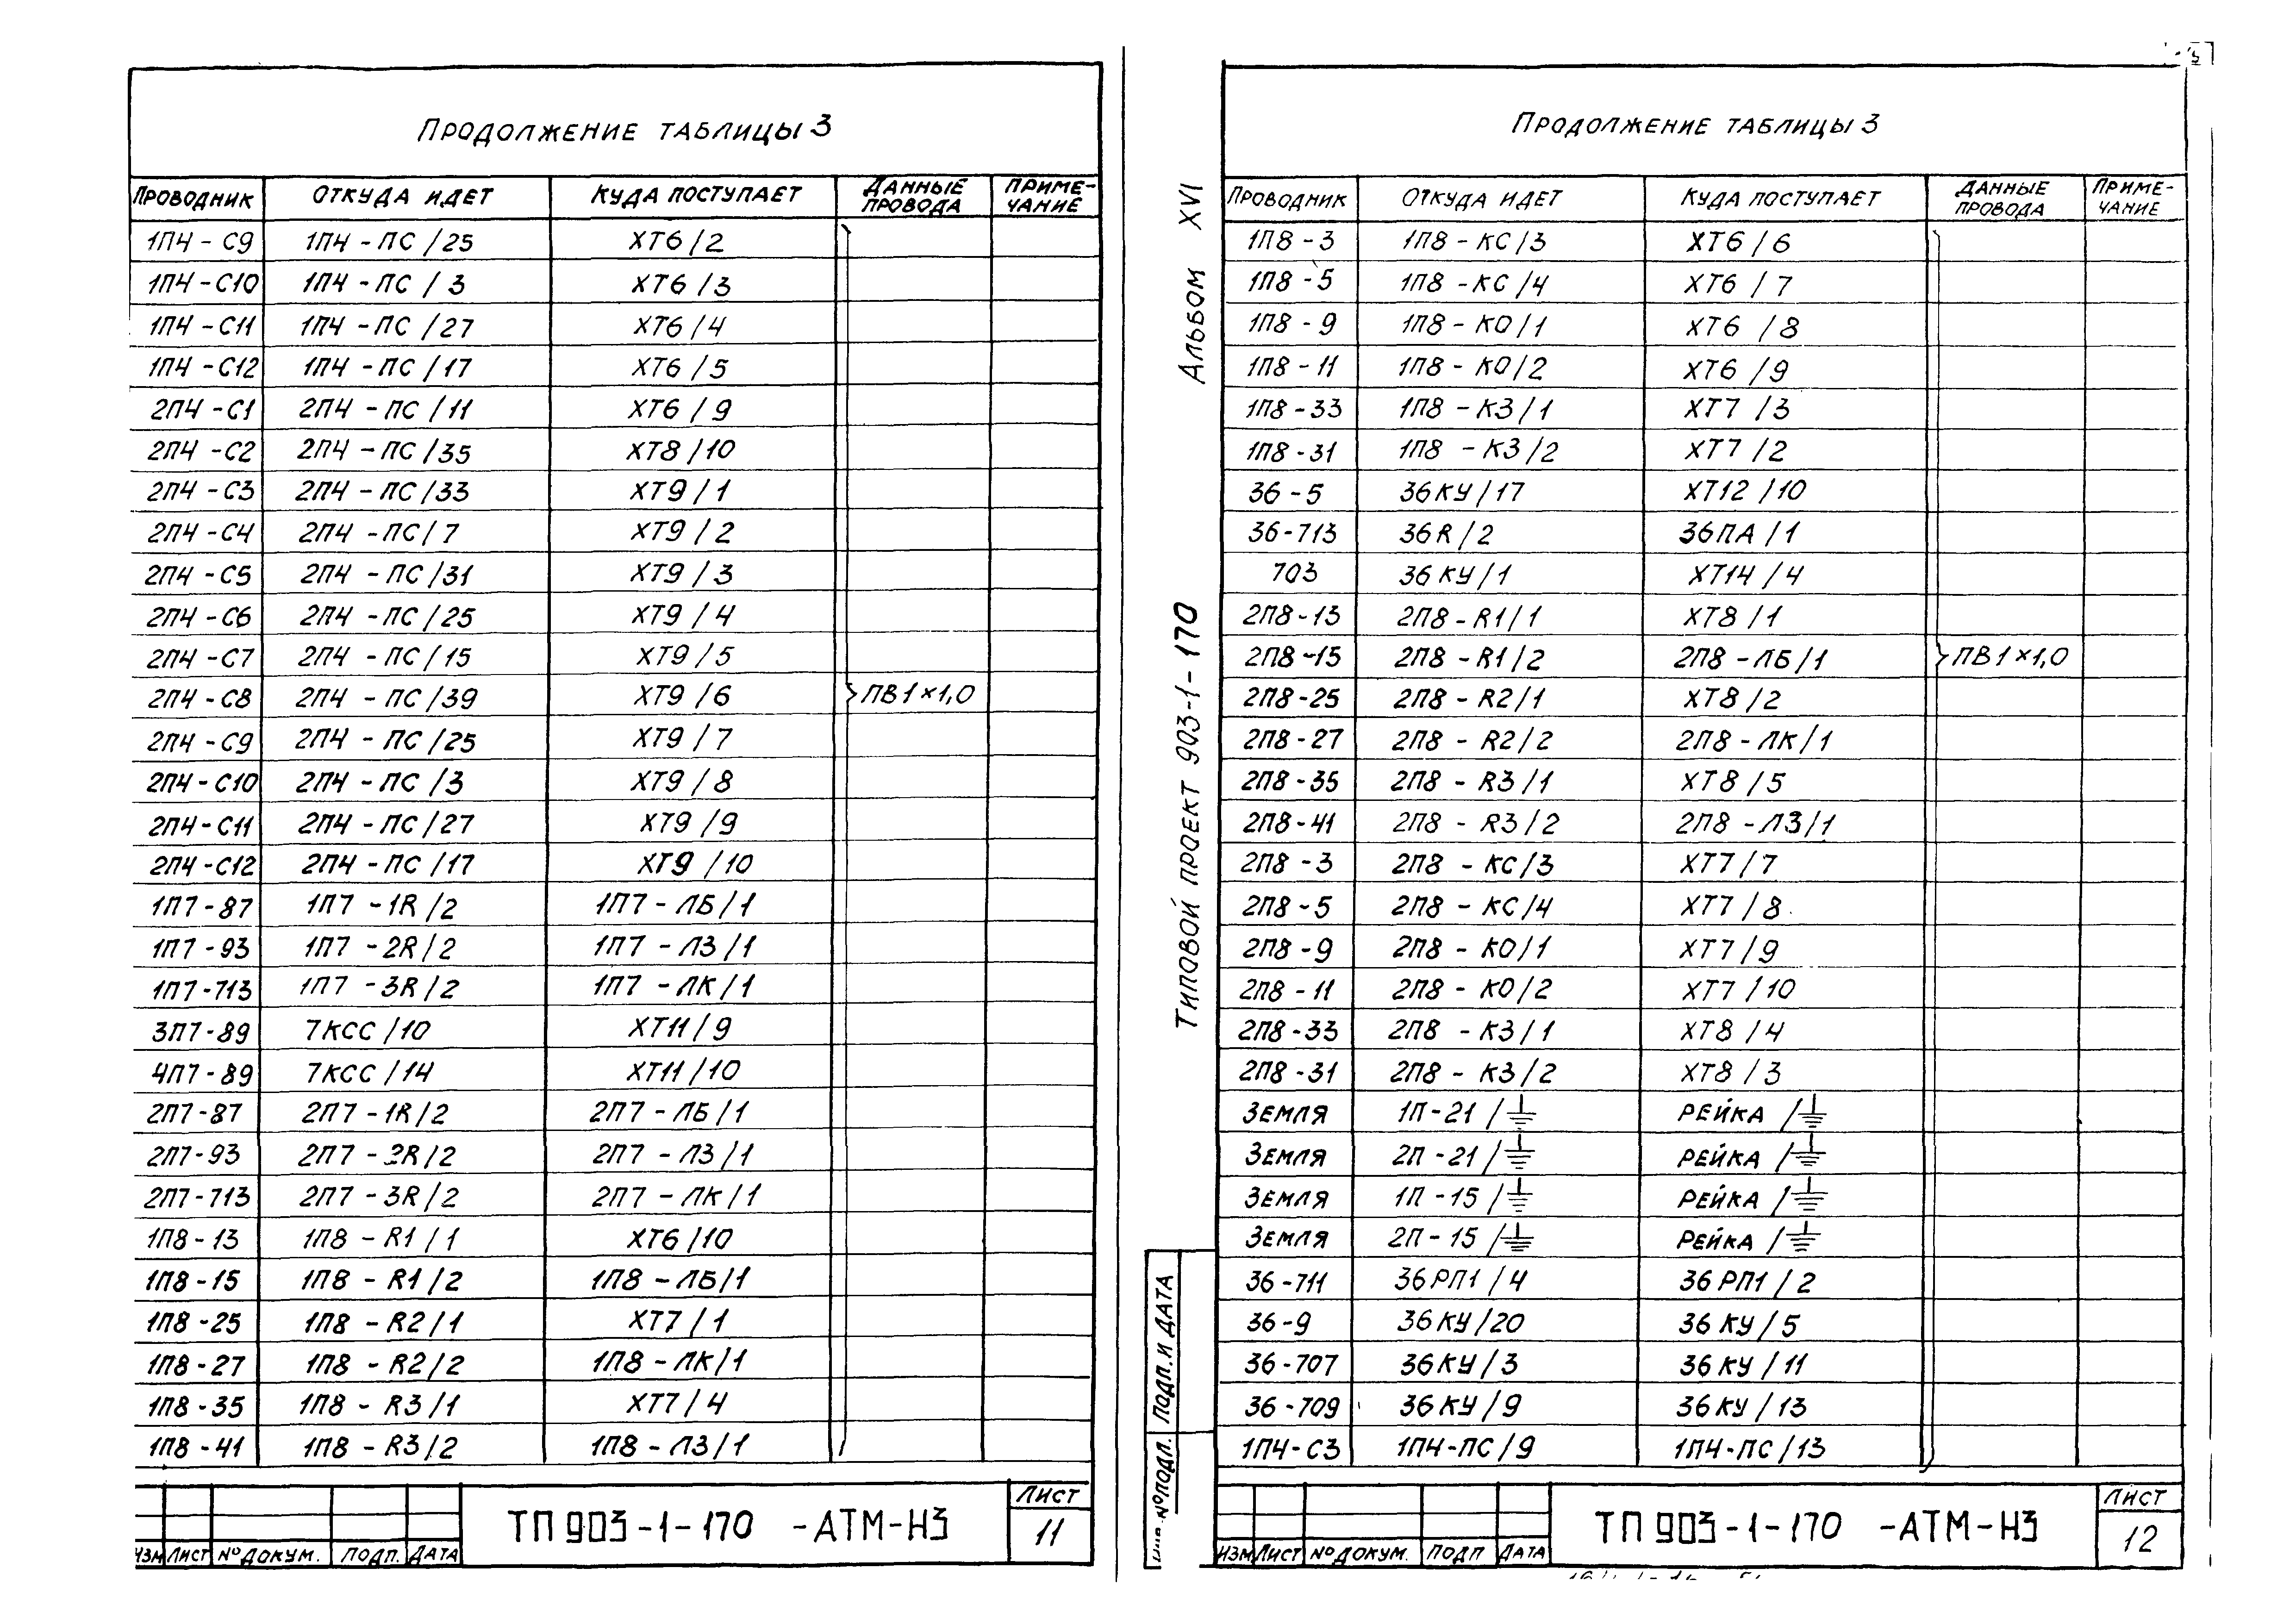 Продолжение таблицы 3
Проводник Откуда идет Куда поступает Данные провода Приме-чание
1П4-С9 1П4-ПС/25 ХТ6/2
1П4-С10 1П4-ПС/3 ХТ6/3
1П4-С11 1П4-ПС/27 ХТ6/4
1П4-С12 1П4-ПС/17 ХТ6/5
2П4-С1 2П4-ПС/11 ХТ6/9
2П4-С2 2П4-ПС/35 ХТ8/10
2П4-С3 2П4-ПС/33 ХТ9/1
2П4-С4 2П4-ПС/7 ХТ9/2
2П4-С5 2П4-ПС/31 ХТ9/3
2П4-С6 2П4-ПС/25 ХТ9/4
2П4-С7 2П4-ПС/15 ХТ9/5
2П4-С8 2П4-ПС/39 ХТ9/6 ПВ1×1,0
2П4-С9 2П4-ПС/25 ХТ9/7
2П4-С10 2П4-ПС/3 ХТ9/8
2П4-С11 2П4-ПС/27 ХТ9/9
2П4-С12 2П4-ПС/17 ХТ9/10
1П7-87 1П7-1R/2 1П7-ЛБ/1
1П7-93 1П7-2R/2 1П7-ЛЗ/1
1П7-713 1П7-3R/2 1П7-ЛК/1
3П7-89 7КСС/10 ХТ11/9
4П7-89 7КСС/14 ХТ11/10
2П7-87 2П7-1R/2 2П7-ЛБ/1
2П7-93 2П7-2R/2 2П7-ЛЗ/1
2П7-713 2П7-3R/2 2П7-ЛК/1
1П8-13 1П8-R1/1 ХТ6/10
1П8-15 1П8-R1/2 1П8-ЛБ/1
1П8-25 1П8-R2/1 ХТ7/1
1П8-27 1П8-R2/2 1П8-ЛК/1
1П8-35 1П8-R3/1 ХТ7/4
1П8-41 1П8-R3/2 1П8-ЛЗ/1
Изм Лист № докум. Подп. Дата
ТП 903-1-170 -АТМ-Н3
Лист
11
Альбом XVI
Типовой проект 903-1-170
Подп. и дата
№ подл.
Продолжение таблицы 3
Проводник Откуда идет Куда поступает Данные провода Приме-чание
1П8-3 1П8-КС/3 ХТ6/6
1П8-5 1П8-КС/4 ХТ6/7
1П8-9 1П8-КО/1 ХТ6/8
1П8-11 1П8-КО/2 ХТ6/9
1П8-33 1П8-КЗ/1 ХТ7/3
1П8-31 1П8-КЗ/2 ХТ7/2
36-5 36КУ/17 ХТ12/10
36-713 36R/2 36ПА/1
703 36КУ/1 ХТ14/4
2П8-13 2П8-R1/1 ХТ8/1
2П8-15 2П8-R1/2 2П8-ЛБ/1 ПВ1×1,0
2П8-25 2П8-R2/1 ХТ8/2
2П8-27 2П8-R2/2 2П8-ЛК/1
2П8-35 2П8-R3/1 ХТ8/5
2П8-41 2П8-R3/2 2П8-ЛЗ/1
2П8-3 2П8-КС/3 ХТ7/7
2П8-5 2П8-КС/4 ХТ7/8
2П8-9 2П8-КО/1 ХТ7/9
2П8-11 2П8-КО/2 ХТ7/10
2П8-33 2П8-КЗ/1 ХТ8/4
2П8-31 2П8-КЗ/2 ХТ8/3
Земля 1П-21/⏚ Рейка/⏚
Земля 2П-21/⏚ Рейка/⏚
Земля 1П-15/⏚ Рейка/⏚
Земля 2П-15/⏚ Рейка/⏚
36-711 36РП1/4 36РП1/2
36-9 36КУ/20 36КУ/5
36-707 36КУ/3 36КУ/11
36-709 36КУ/9 36КУ/13
1П4-С3 1П4-ПС/9 1П4-ПС/13
Изм Лист № докум. Подп Дата
ТП 903-1-170 -АТМ-Н3
Лист
12